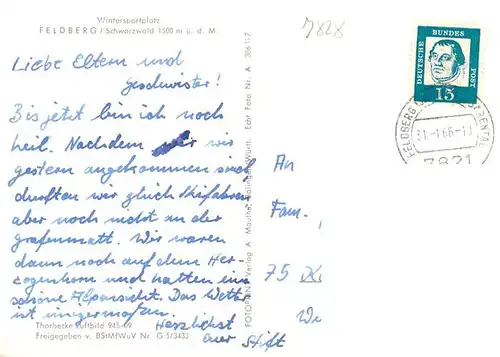 Wintersportplatz
FELDBERG / Schwarzwald 1500 m ü. d. M
7828
Liebe Eltern und
Geschwister!
Bis jetzt bin ich noch
heil. Nachdem wir
gestern angekommen sind
durften wir gleich skifahren
aber noch nicht an der
grafenmatt. Wir waren
dann noch auf dem Her-
zogenhorn und hatten eine
schöne Alpensicht. Das Wetter
ist einigermaßen.
Herzlichst
euer
Thorhecke Luftbild 945-09
Freigegeben v. BStMfWuV Nr. G 5/3433
Echt Foto Nr. A 386
Verlag A
Württ.
DEUTSCHE BUNDES POST
15
FELDBERG
7821
An
Fam.
75